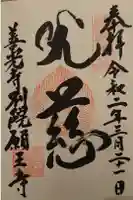 奉拝 令和二年三月二十一日
慈光
善光寺別院願王寺